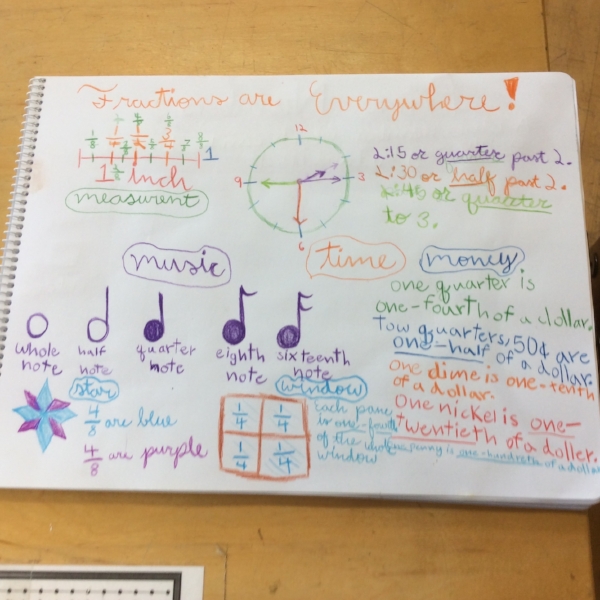 Fractions are Everywhere!
1/8 3/8 5/8 7/8 8/8 1
1 inch
measurent
12
3
6
9
2:15 or quarter past 2.
2:30 or half past 2.
2:45 or quarter
to 3.
music
time
money
whole
note
half
note
quarter
note
eighth
note
sixteenth
note
one quarter is
one-fourth of a dollar.
tow quarters, 50¢ are
one-half of a dollar.
one dime is one-tenth
of a dollar.
One nickel is one-
twentieth of a doller.
one penny is one-hundreth of a dollar
star
4/8 are blue
4/8 are purple
window
1/4 1/4
1/4 1/4
Each pane
is one-fourth
of the whole
window